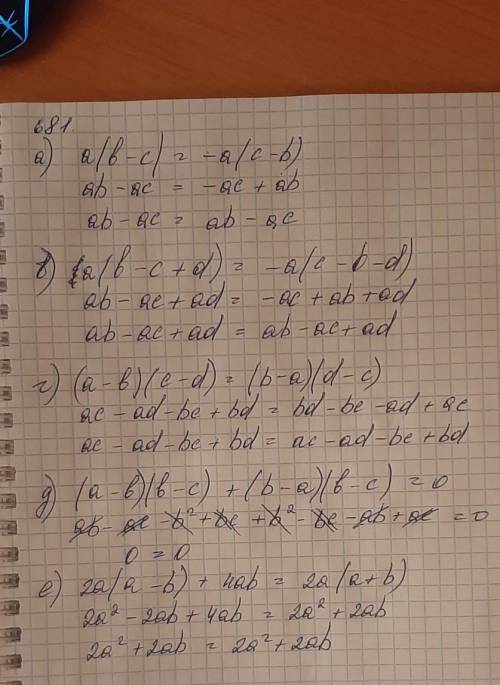 681.
а) a(b-c) = -a(c-b)
ab-ac = -ac+ab
ab-ac = ab-ac
в) a(b-c+d) = -a(c-b-d)
ab-ac+ad = -ac+ab+ad
ab-ac+ad = ab-ac+ad
г) (a-b)(c-d) = (b-a)(d-c)
ac-ad-bc+bd = bd-bc-ad+ac
ac-ad-bc+bd = ac-ad-bc+bd
д) (a-b)(b-c)+(b-a)(b-c) = 0
ab-ac-b²+bc+b²-bc-ab+ac = 0
0 = 0
е) 2a(a-b)+4ab = 2a(a+b)
2a²-2ab+4ab = 2a²+2ab
2a²+2ab = 2a²+2ab